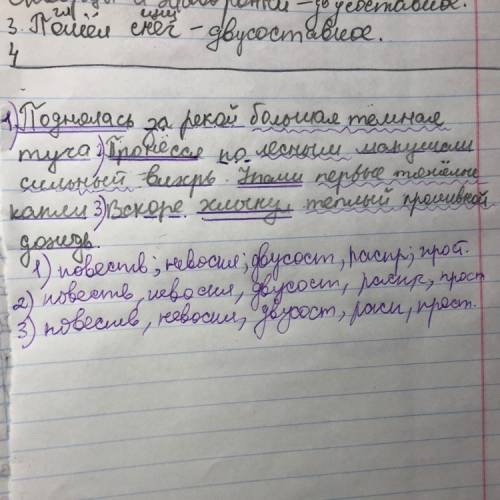 гл сущ
3. Пошёл снег – двусоставное.
4
1) Поднялась за рекой большая тёмная
туча 2) Пронёсся по лесным макушкам
сильный вихрь. Упали первые тяжёлые
капли 3) Вскоре хлынул тёплый проливной
дождь.
1) повеств; невоскл; двусост, распр; прост.
2) повеств, невоскл, двусост, распр, прост
3) повеств, невоскл, двусост, расп, прост.